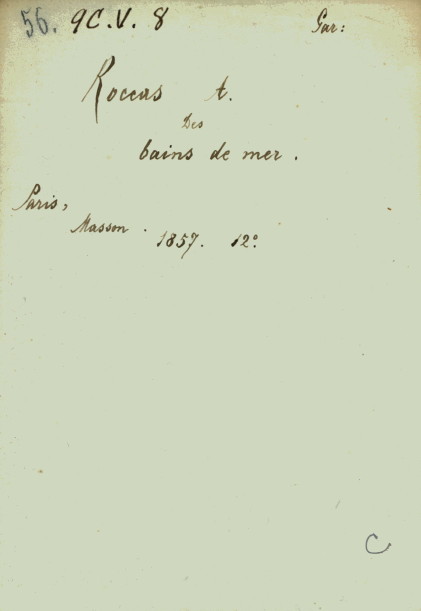 56. 9C.V. 8 Gar:
Roccas A.
Des
bains de mer.
Paris,
Masson.
1857. 12º
C